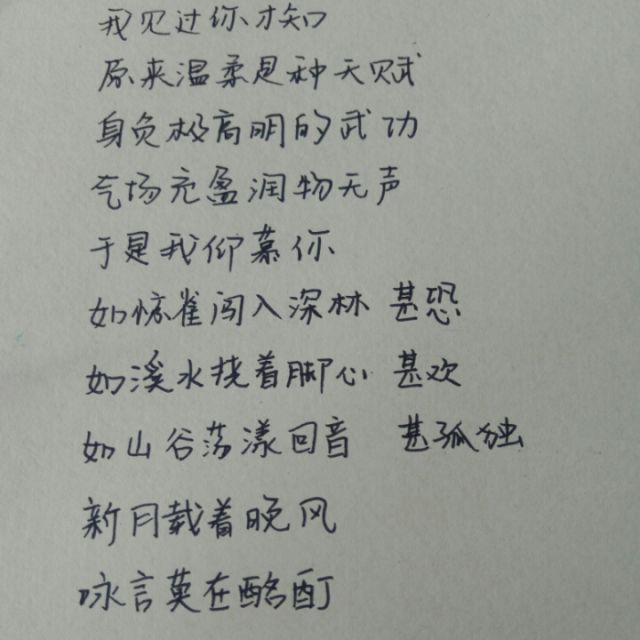 我见过你才知
原来温柔是种天赋
身负极高明的武功
气场充盈润物无声
于是我仰慕你
如惊雀闯入深林 甚恐
如溪水挠着脚心 甚欢
如山谷荡漾回音 甚孤独
新月载着晚风
咏言莫在酩酊